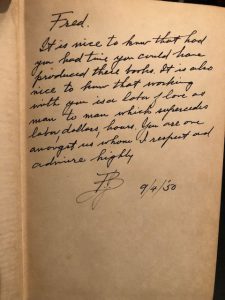 Fred.
It is nice to know that had
you had time you could have
produced these books. It is also
nice to know that working
with you is a labor of love as
man to man which supercedes
labor, dollars, hours. You are one
amongst us whom I respect and
admire highly
9/4/50